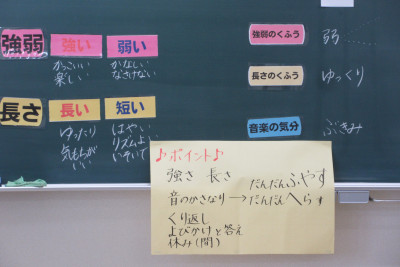 強弱
強い
弱い
かっこいい
楽しい
かなしい
なさけない
長さ
長い
短い
ゆったり
気もちが
いい
はやい
リズムよい
いそいで
強弱のくふう
弱
長さのくふう
ゆっくり
音楽の気分
ぶきみ
♪ポイント♪
強さ 長さ
音のかさなり→だんだんふやす
だんだんへらす
くり返し
よびかけと答え
休み(間)